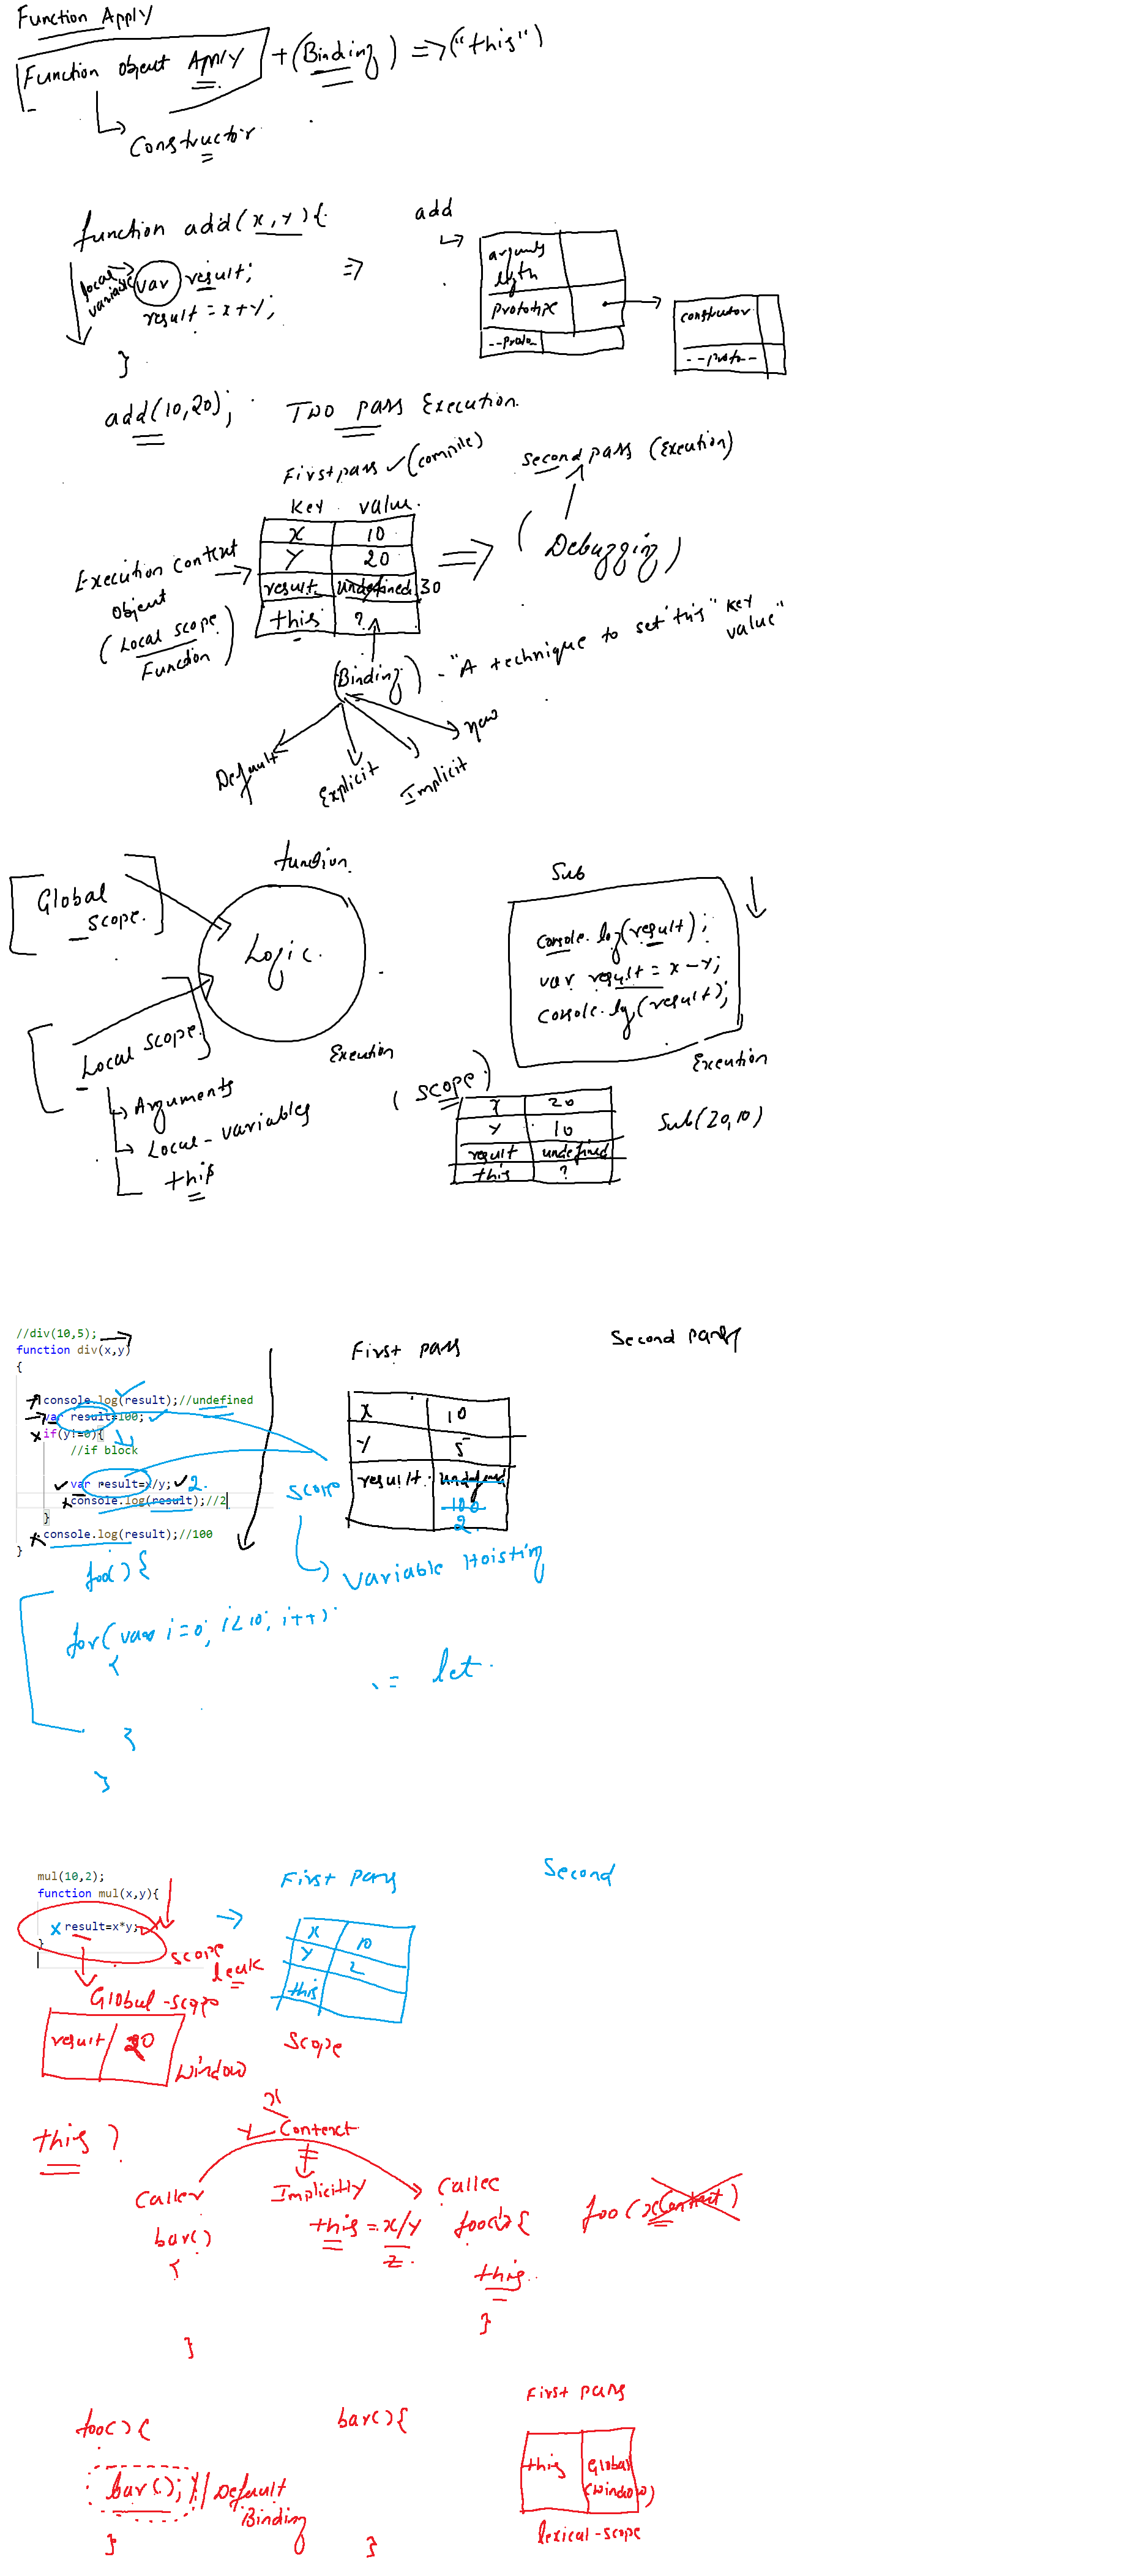 Function Apply
Function object Apply + (Binding) => ("this")
Constructor
function add(x,y){
local variable
var result;
result = x+y;
}
=>
add
arguments
length
prototype
--proto--
constructor
--proto--
add(10,20);
Two pass Execution.
First pass (compile)
Second pass (Execution)
Key value
x 10
y 20
result undefined 30
this ?
Execution context
object
(Local scope
Function)
=>
(Debugging)
(Binding) - "A technique to set 'this' key
value"
Default
Explicit
Implicit
new
Global
scope.
function
Logic.
Execution
Local scope.
Arguments
Local-variables
this
Sub
console.log(result);
var result = x-y;
console.log(result);
Execution
(scope)
x 20
y 10
result undefined
this ?
Sub(20,10)
//div(10,5);
function div(x,y)
{
console.log(result);//undefined
var result=100;
if(y!=0){
//if block
var result=x/y; 2.
console.log(result);//2
}
console.log(result);//100
}
First pass
Second pass
x 10
y 5
result undefined
100
2
scope
Variable Hoisting
foo(){
for(var i=0; i<10; i++)
{
}
}
= let.
mul(10,2);
function mul(x,y){
x result=x*y;
}
scope
leak
Global-scope
result 20
Window
First pass
Second
x 10
y 2
this
Scope
this ?
x
y Context
Caller
bar()
{
}
Implicitly
this = x/y
z.
Callee
foo(){
this.
}
foo(xContext)
foo(){
bar(); // Default
Binding
}
bar(){
}
First pass
this Global
(Window)
lexical-scope